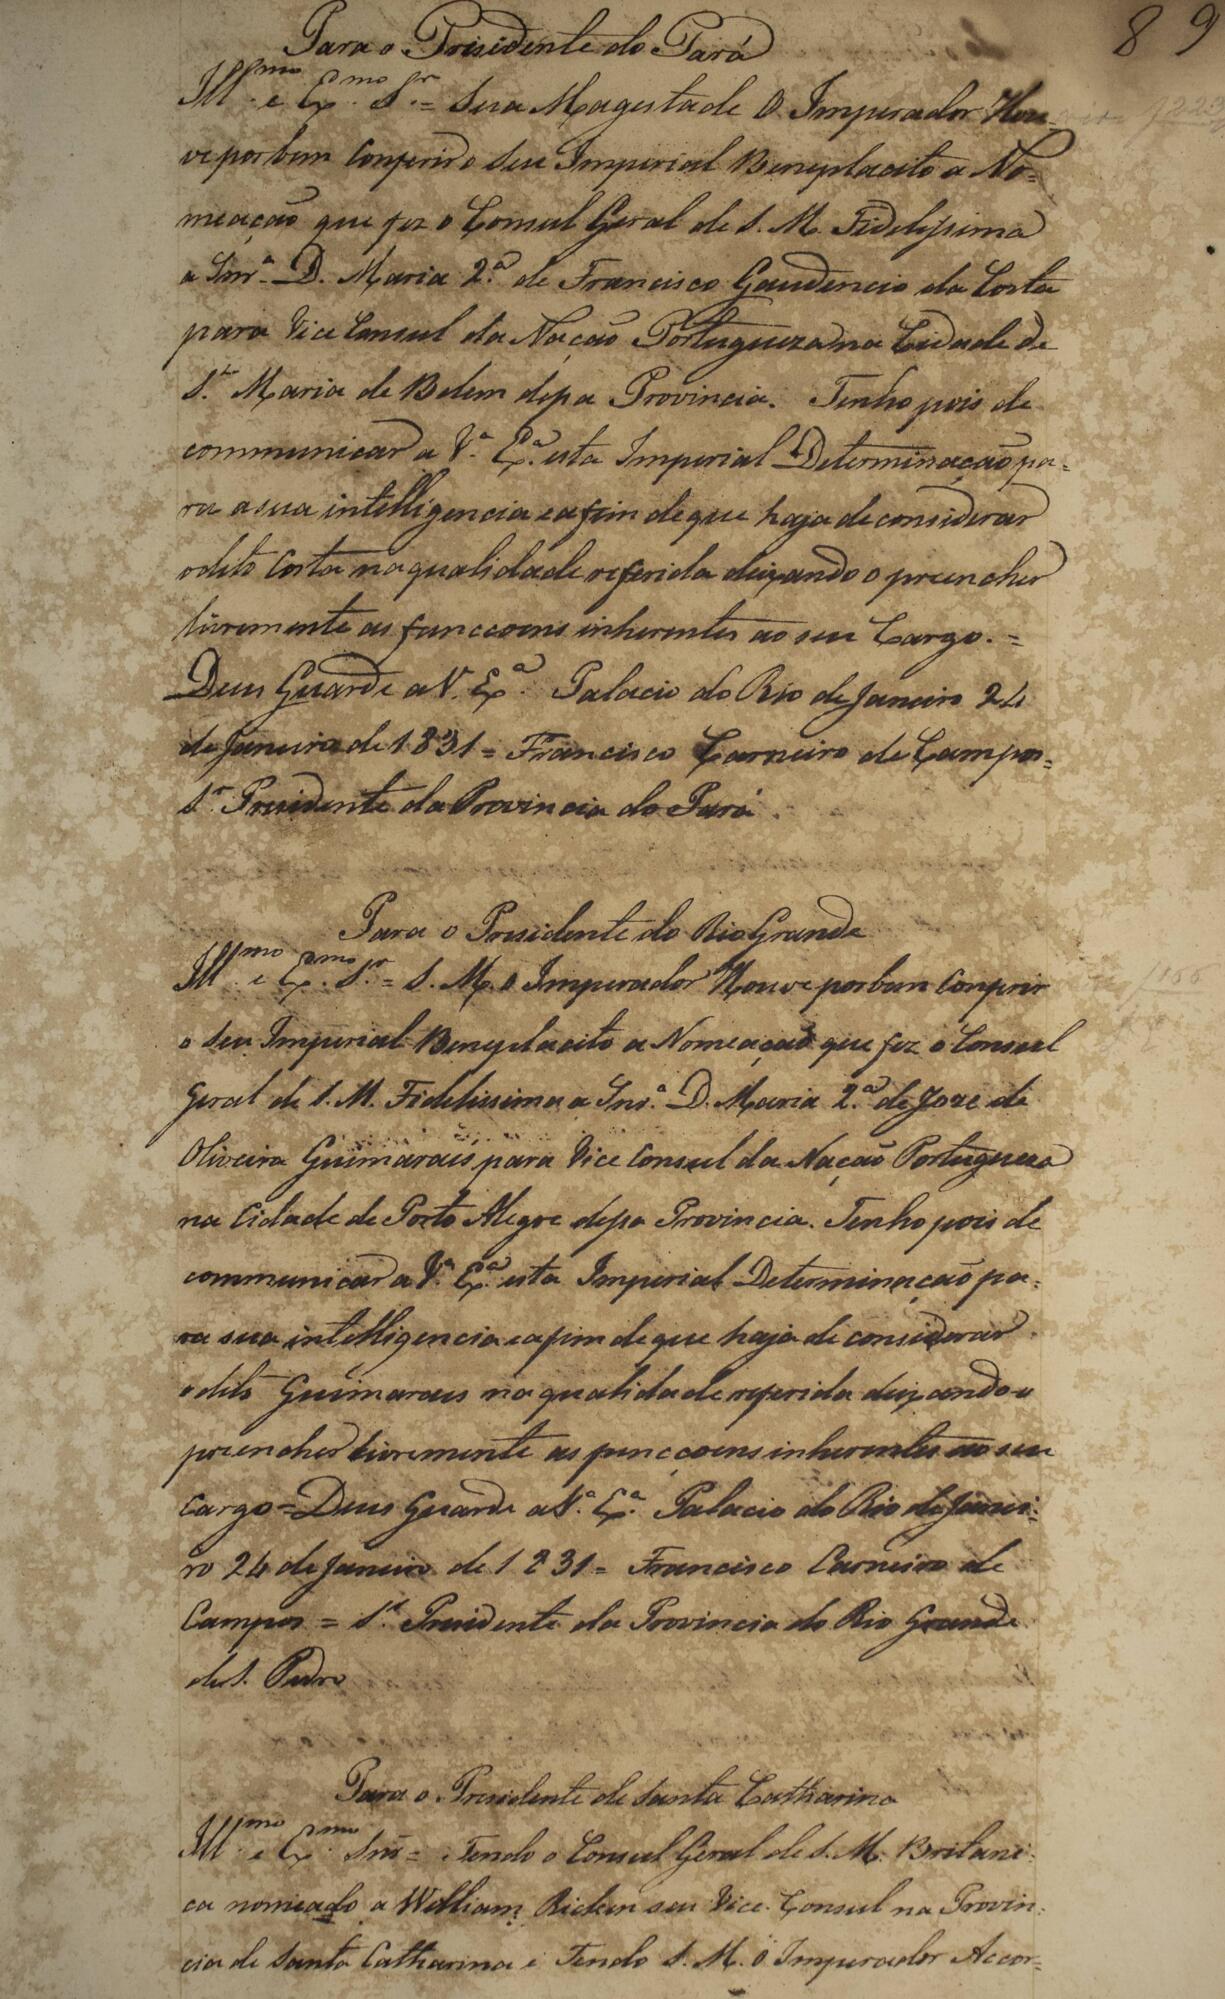 89
Para o Prisidente do Pará
Ill.mo e Ex.mo S.r = Sua Magestade O Imperador Hou-
ve por bem Conferir o Seu Imperial Beneplacito a No-
meação que fez o Consul Geral de S. M. Fidelissima
a Snr.a D. Maria 2.a de Francisco Gaudencio da Costa
para Vice Consul da Nação Portugueza na Cidade de
S.ta Maria de Belem dessa Provincia. Tenho pois de
communicar a V.a Ex.a esta Imperial Determinação pa-
ra a sua intelligencia e a fim de que haja de considerar
o dito Costa na qualidade referida deixando o preencher
livremente as funccoens inherentes ao seu Cargo. =
Deus Guarde a V. Ex.a Palacio do Rio de Janeiro 24
de Janeiro de 1831 = Francisco Carneiro de Campos =
S.r Presidente da Provincia do Pará.
Para o Presidente do Rio Grande
Ill.mo e Ex.mo S.r = S. M. O Imperador Houve por bem Conferir
o Seu Imperial Beneplacito a Nomeação que fez o Consul
Geral de S. M. Fidelissima a Snr.a D. Maria 2.a de Joze de
Oliveira Guimaraes para Vice Consul da Nação Portugueza
na Cidade de Porto Alegre dessa Provincia. Tenho pois de
communicar a V.a Ex.a esta Imperial Determinação pa-
ra sua intelligencia e a fim de que haja de considerar
o dito Guimaraes na qualidade referida deixando-o
preencher livremente as funccoens inherentes ao seu
Cargo = Deus Guarde a V.a Ex.a Palacio do Rio de Janei-
ro 24 de Janeiro de 1831 = Francisco Carneiro de
Campos = S.r Presidente da Provincia do Rio Grande
de S. Pedro
Para o Presidente de Santa Catharina
Ill.mo e Ex.mo Snr = Tendo o Consul Geral de S. M. Britani-
ca nomeado a William seu Vice Consul na Provin-
cia de Santa Catharina e Tendo S. M. O Imperador Accor-